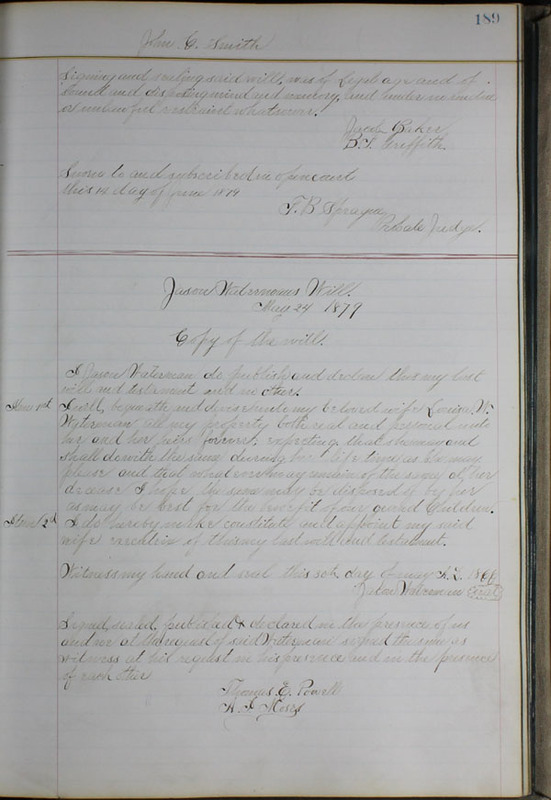 189
John C. Smith
signing and sealing said will, was of legal age and of
sound and disposing mind and memory, and under no undue
or unlawful restraint whatsoever.
Jacob Baker
B. F. Griffith.
Sworn to and subscribed in open court
this 14 day of June 1879
F. B. Sprague
Probate Judge.
Jason Waterman's Will.
May 24 1879
Copy of the will.
I Jason Waterman do publish and declare this my last
will and testament and no other.
Item 1st I will, bequeath and devise unto my beloved wife Louisa W.
Waterman all my property both real and personal unto
her and her heirs forever. expecting that she may and
shall the same during her life time as she may
please and that whatever may remain of the same at her
decease I hope the same may be disposed of by her
as may be best for the benefit of our Children.
Item 2d I do hereby make constitute and appoint my said
wife executrix of this my last will and testament.
Witness my hand and seal this 30th day of May A.D.
Jason Waterman Seal
Signed, sealed, published & declared in the presence of us
and we at the request of said Waterman signed the same as
witness at his request in his presence and in the presence
of each other
Thomas E. Powell